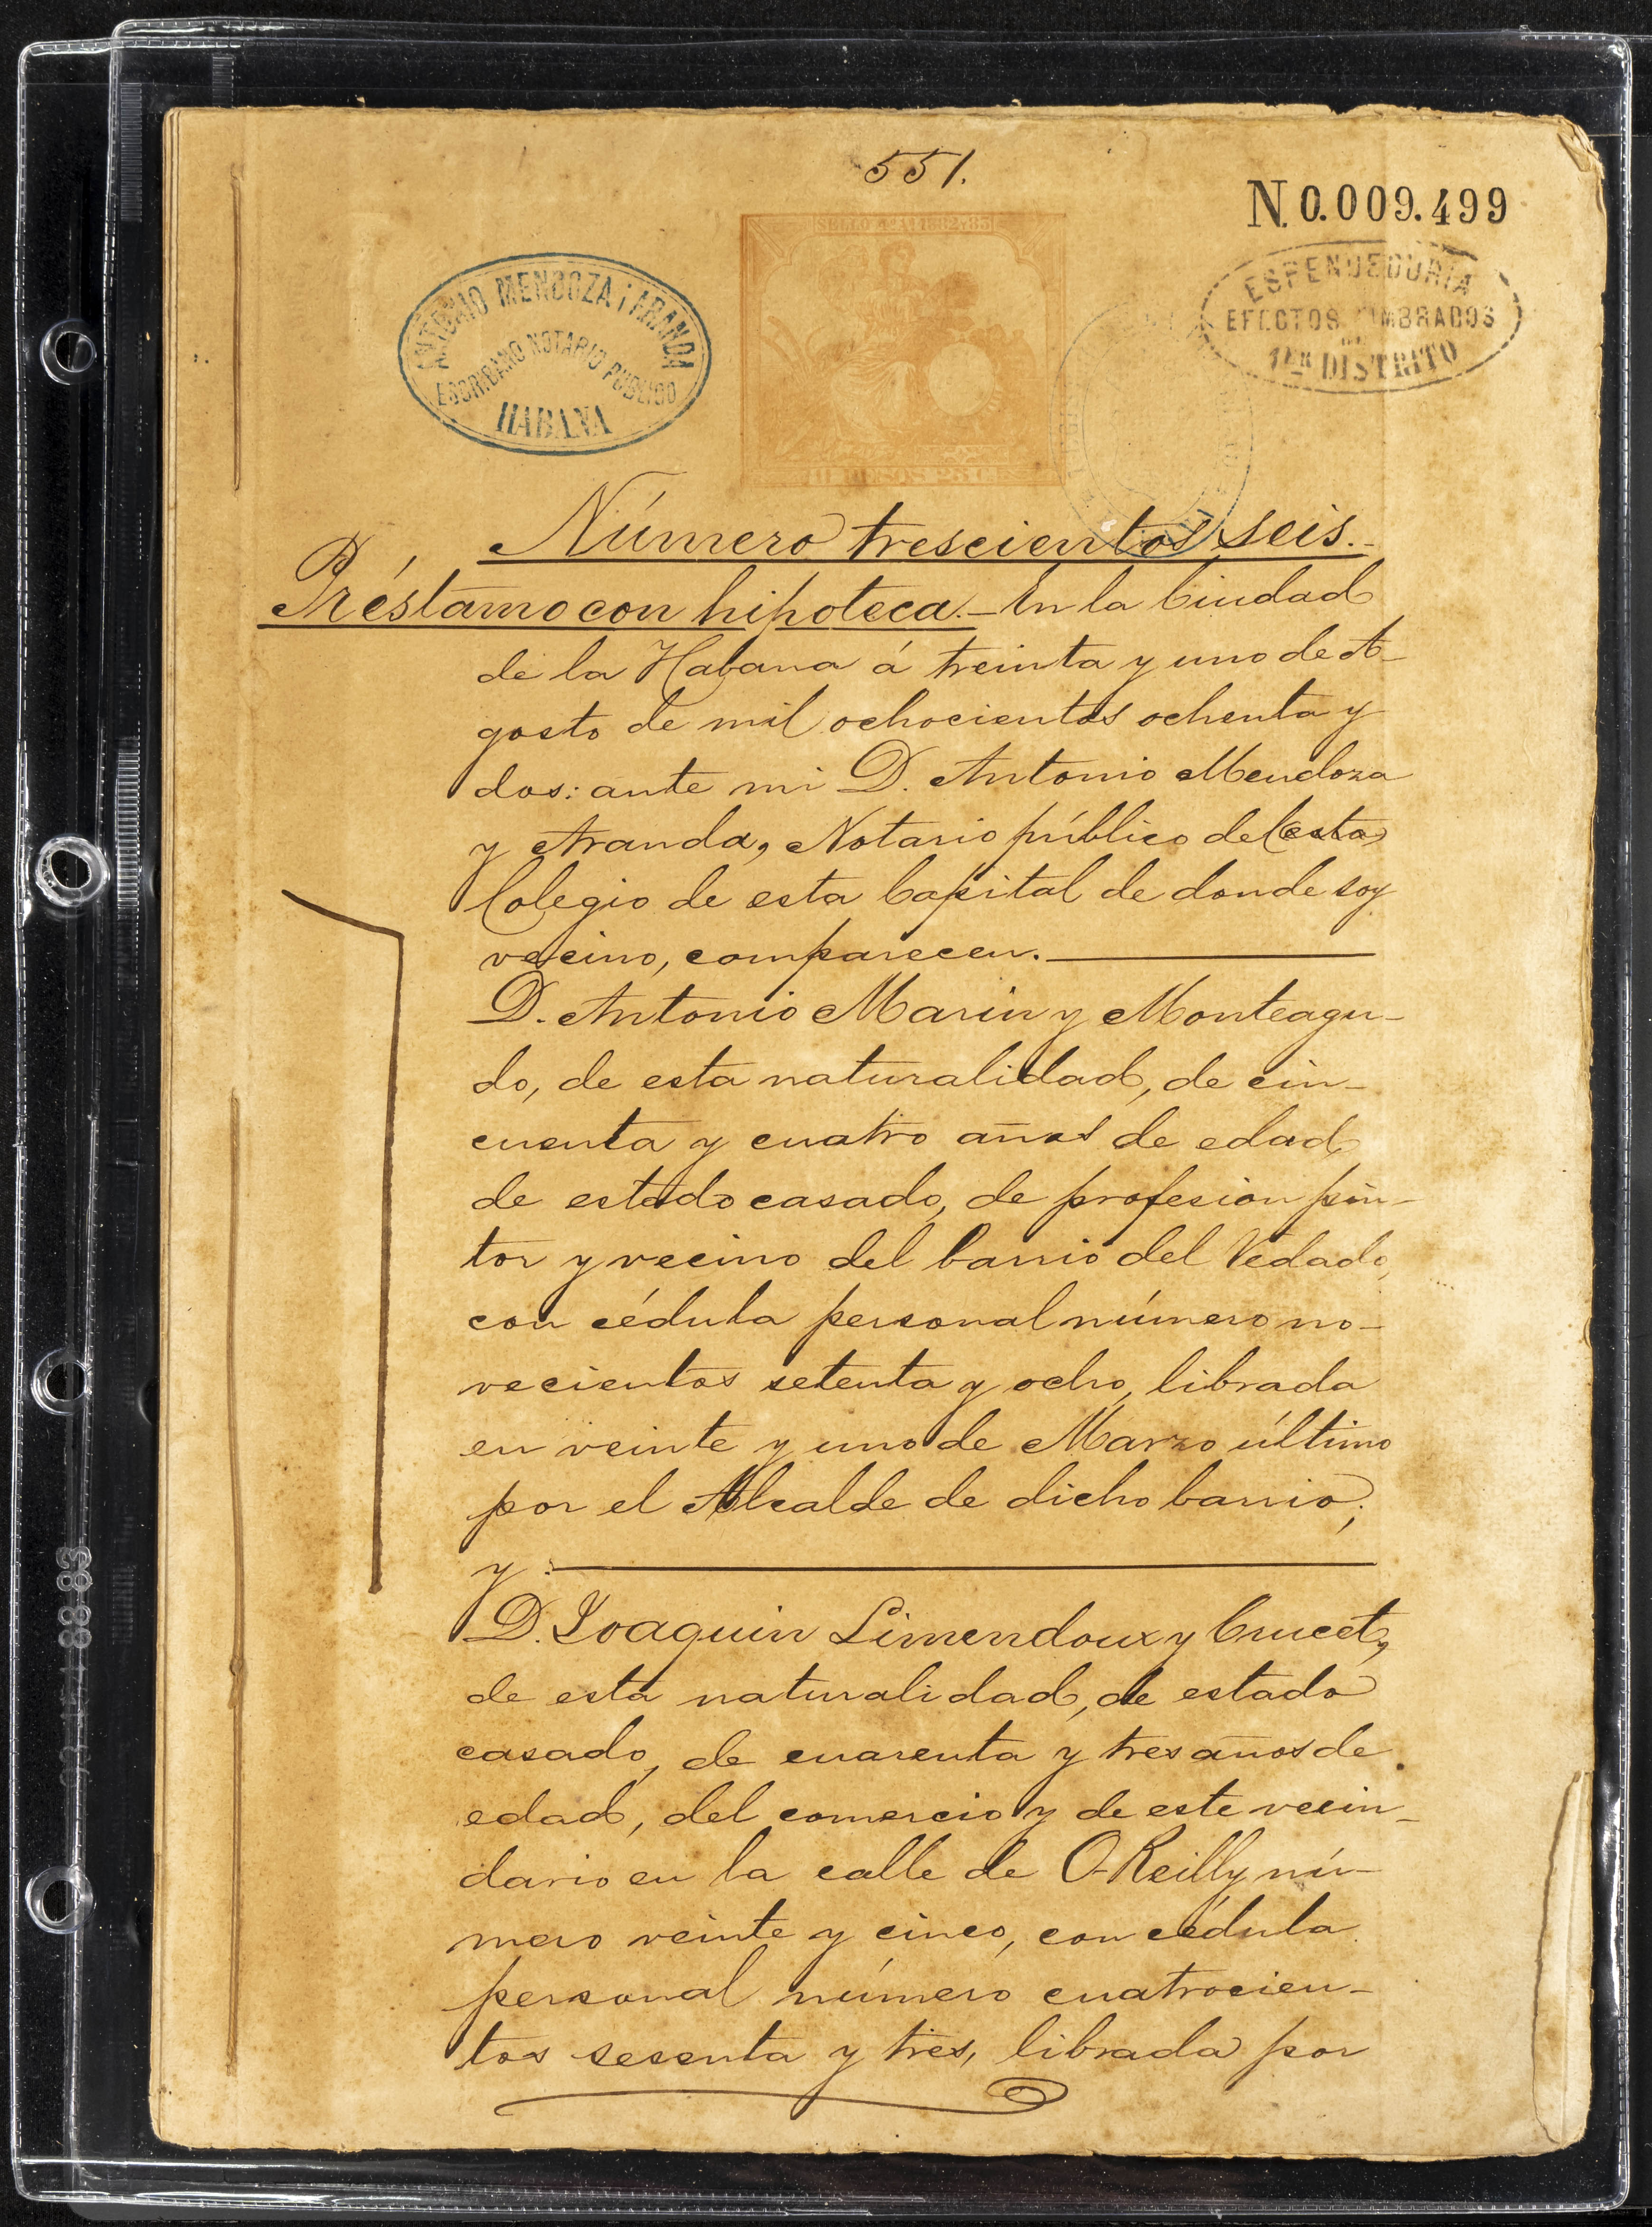 551.
N. 0.009.499
SELLO 4º Aº 1882 y 83
ANTONIO MENDOZA i ARANDA
ESCRIBANO NOTARIO PUBLICO
HABANA
ESPENDEDURIA
EFECTOS TIMBRADOS
DE
1ER DISTRITO
Número trescientos seis.-
Préstamo con hipoteca.- En la Ciudad
de la Habana á treinta y uno de A-
gosto de mil ochocientos ochenta y
dos: ante mi D. Antonio Mendoza
y Aranda, Notario público del
Colegio de esta Capital de donde soy
vecino, comparecen.
D. Antonio Marin y Monteagu-
do, de esta naturalidad, de cin-
cuenta y cuatro años de edad,
de estado casado, de profesion pin-
tor y vecino del barrio del Vedado,
con cédula personal número no-
vecientos setenta y ocho, librada
en veinte y uno de Marzo último
por el Alcalde de dicho barrio;
y
D. Joaquin Limendoux y Crucet,
de esta naturalidad, de estado
casado, de cuarenta y tres años de
edad, del comercio y de este vecin-
dario en la calle de O-Reilly nú-
mero veinte y cinco, con cédula
personal número cuatrocien-
tos sesenta y tres, librada por